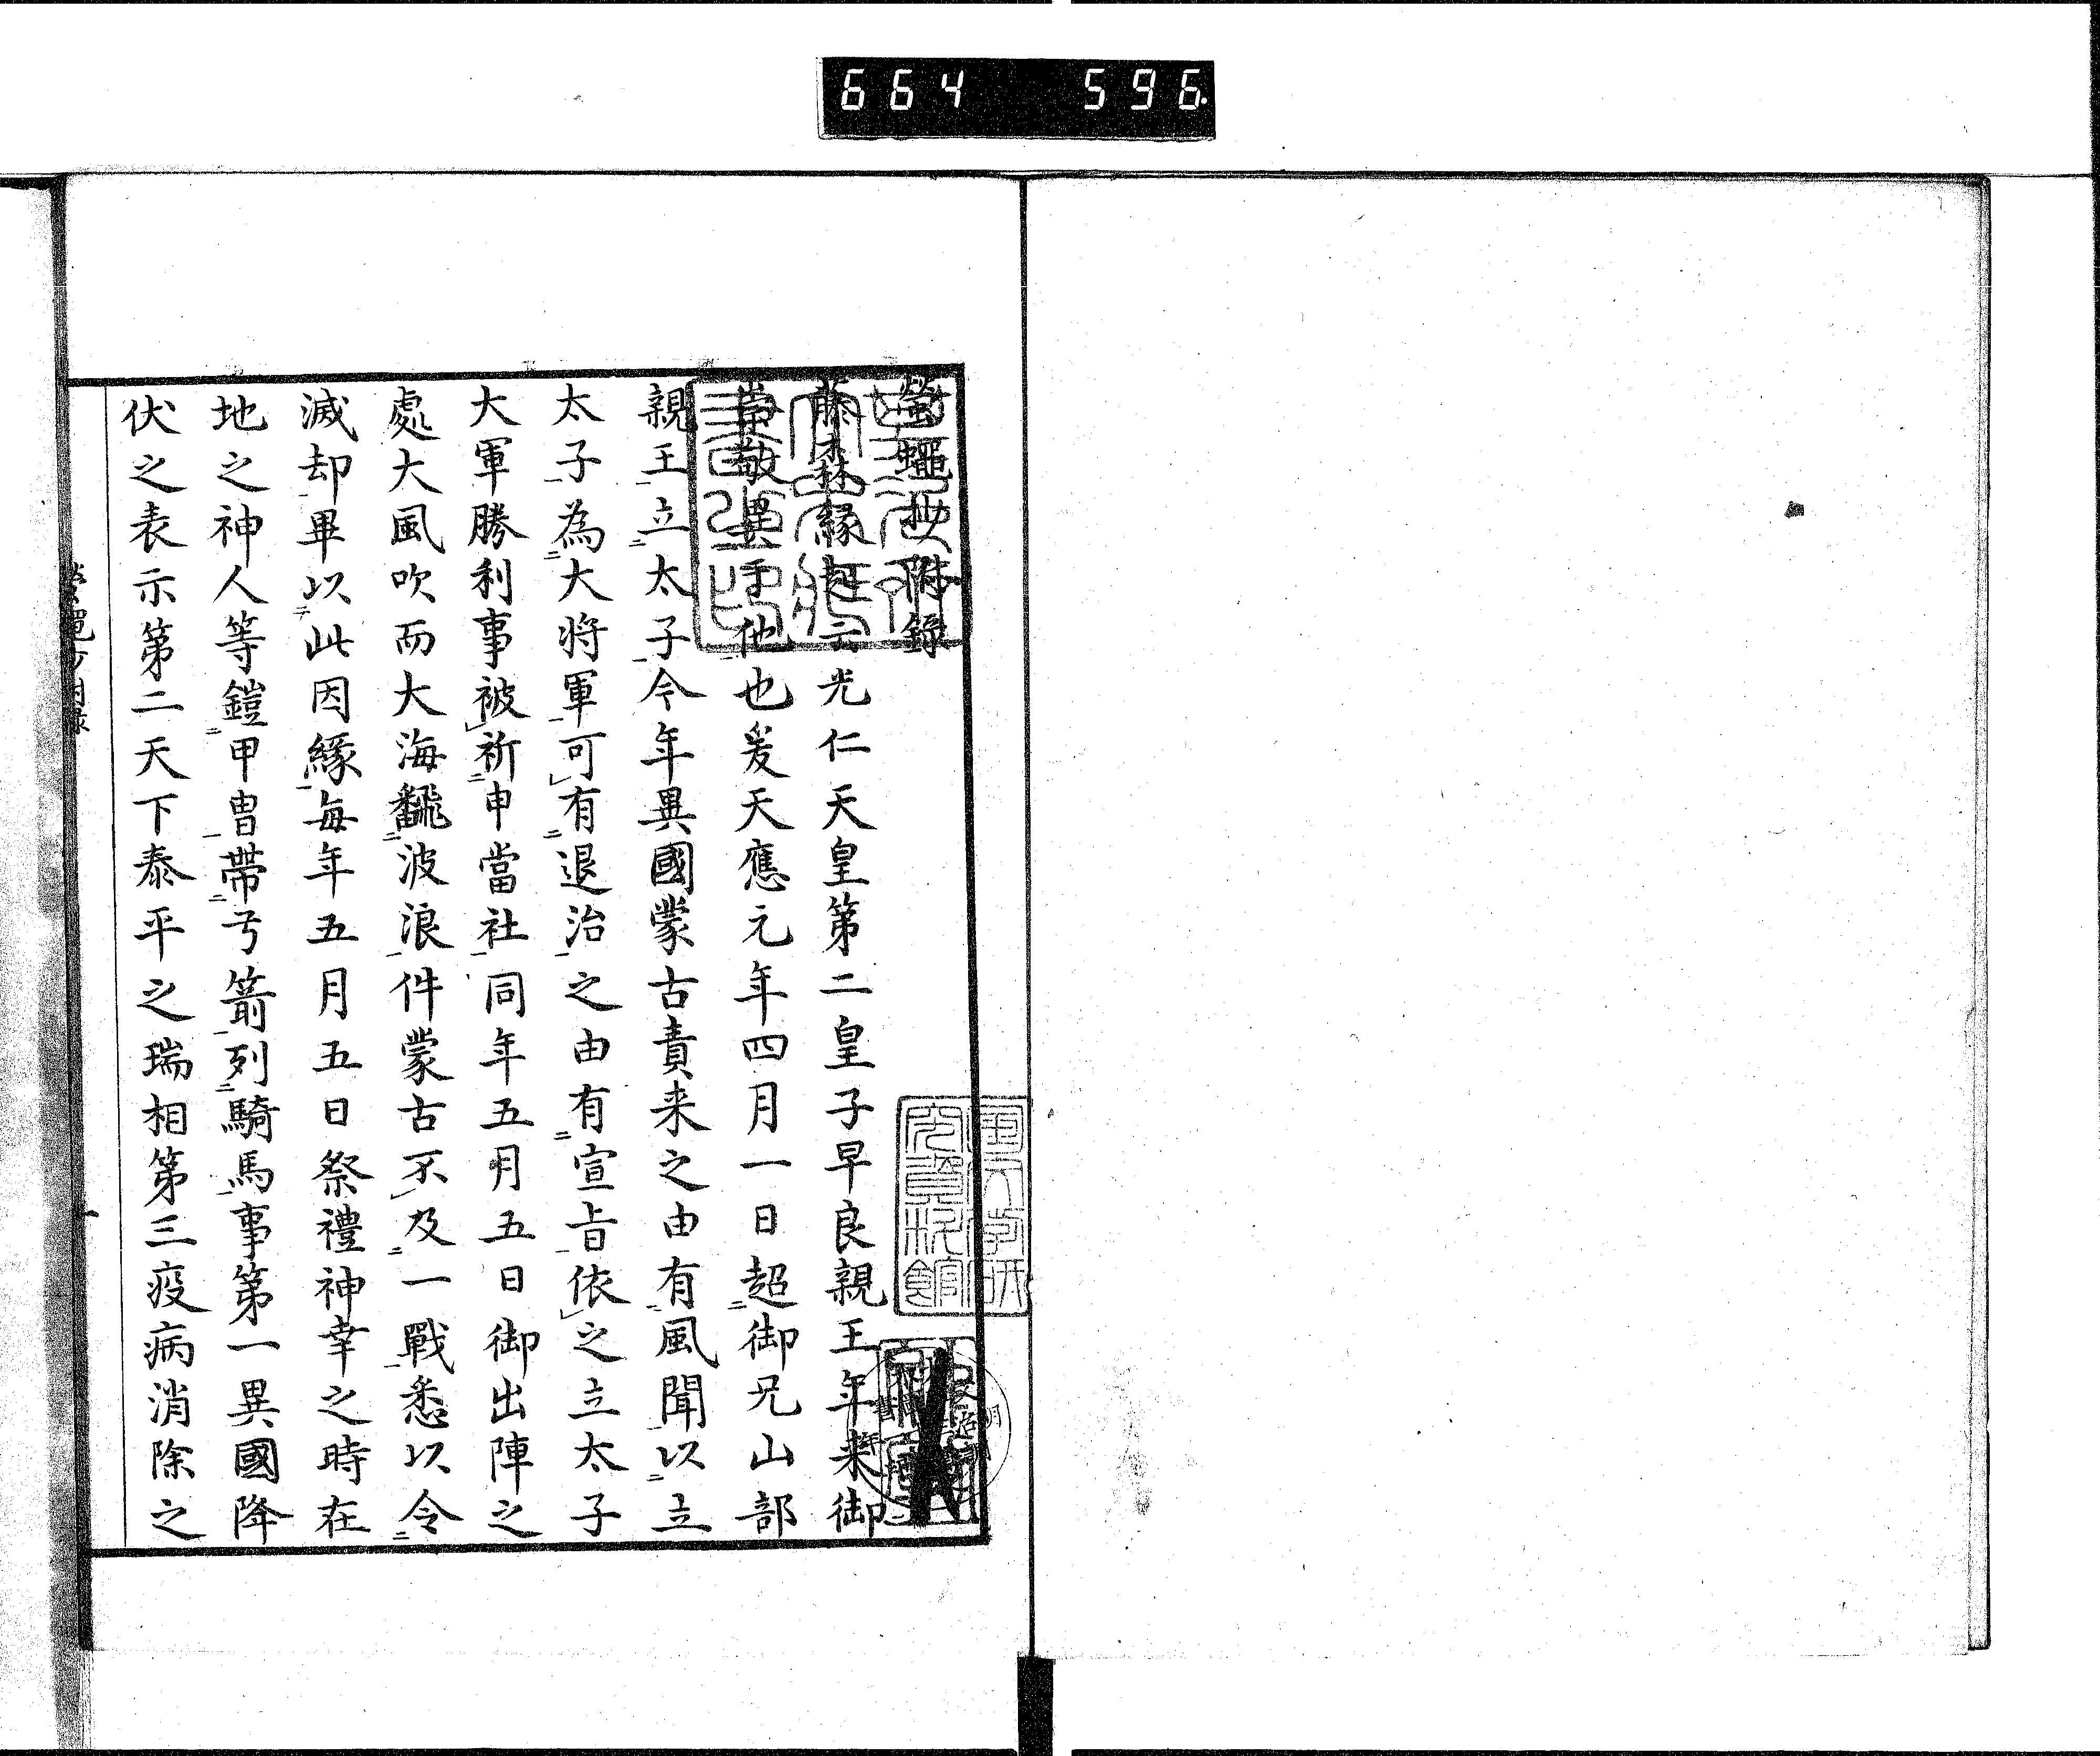 664 596
螢蠅抄附錄
藤森緣起云光仁天皇第二皇子早良親王年来御
崇敬異于他也爰天應元年四月一日超御兄山部
親王立太子今年異國蒙古責来之由有風聞以立
太子為大将軍可有退治之由有宣旨依之立太子
大軍勝利事被祈申當社同年五月五日御出陣之
處大風吹而大海飜波浪件蒙古不及一戰悉以令
滅却畢以此因緣每年五月五日祭禮神幸之時在
地之神人等鎧甲冑帶弓箭列騎馬事第一異國降
伏之表示第二天下泰平之瑞相第三疫病消除之